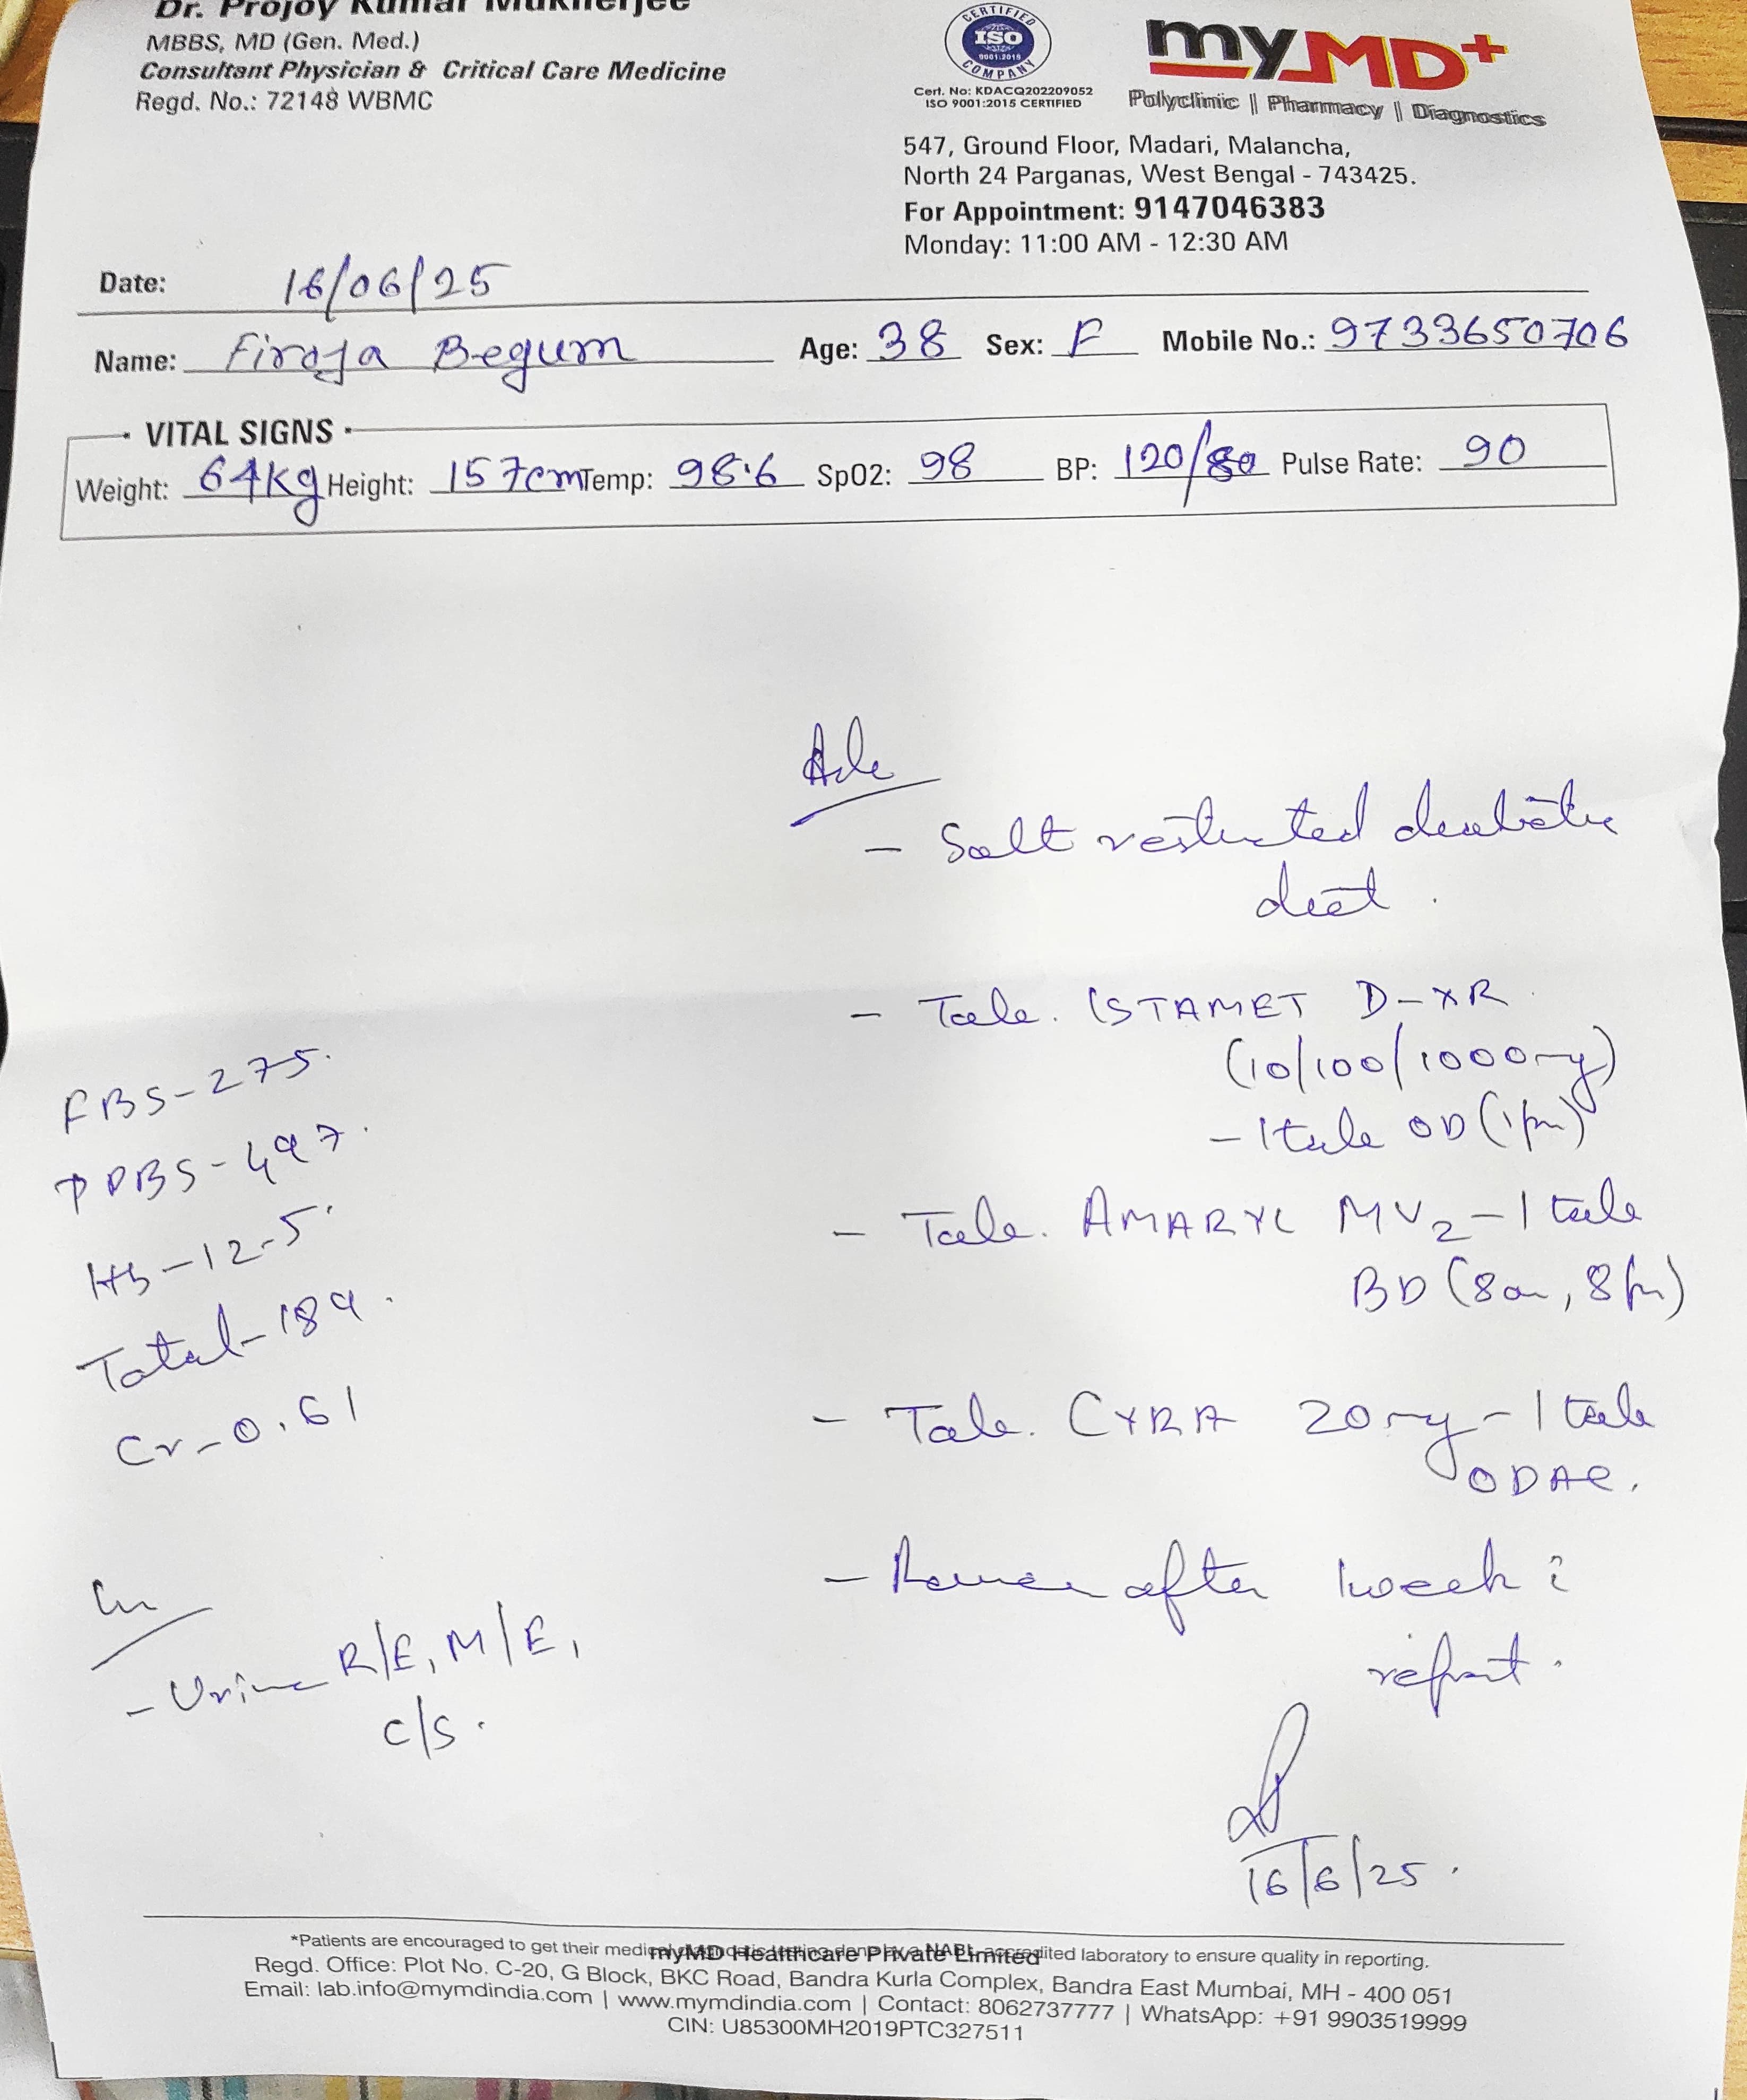 Dr. Projoy Kumar Mukherjee
MBBS, MD (Gen. Med.)
Consultant Physician & Critical Care Medicine
Regd. No.: 72148 WBMC
CERTIFIED
ISO
9001:2015
COMPANY
Cert. No: KDACQ202209052
ISO 9001:2015 CERTIFIED
myMD+
Polyclinic || Pharmacy || Diagnostics
547, Ground Floor, Madari, Malancha,
North 24 Parganas, West Bengal - 743425.
For Appointment: 9147046383
Monday: 11:00 AM - 12:30 AM
Date: 16/06/25
Name: Firoja Begum Age: 38 Sex: F Mobile No.: 9733650706
VITAL SIGNS
Weight: 64kg Height: 157cm Temp: 98.6 SpO2: 98 BP: 120/80 Pulse Rate: 90
Adv
- Salt restricted diabetic
diet.
- Tab. ISTAMET D-XR
(10/100/1000mg)
- 1 tab OD (1pm)
- Tab. AMARYL MV2 - 1 tab
BD (8am, 8pm)
- Tab. CYRA 20mg - 1 tab
ODAC.
- Review after 1 week c̄
report.
FBS - 275.
PPBS - 497.
Hb - 12.5.
Total - 189.
Cr - 0.61
Inv
- Urine R/E, M/E,
C/S.
16/6/25.
*Patients are encouraged to get their medical diagnostic testing done by a NABL accredited laboratory to ensure quality in reporting.
myMD Healthcare Private Limited
Regd. Office: Plot No. C-20, G Block, BKC Road, Bandra Kurla Complex, Bandra East Mumbai, MH - 400 051
Email: lab.info@mymdindia.com | www.mymdindia.com | Contact: 8062737777 | WhatsApp: +91 9903519999
CIN: U85300MH2019PTC327511